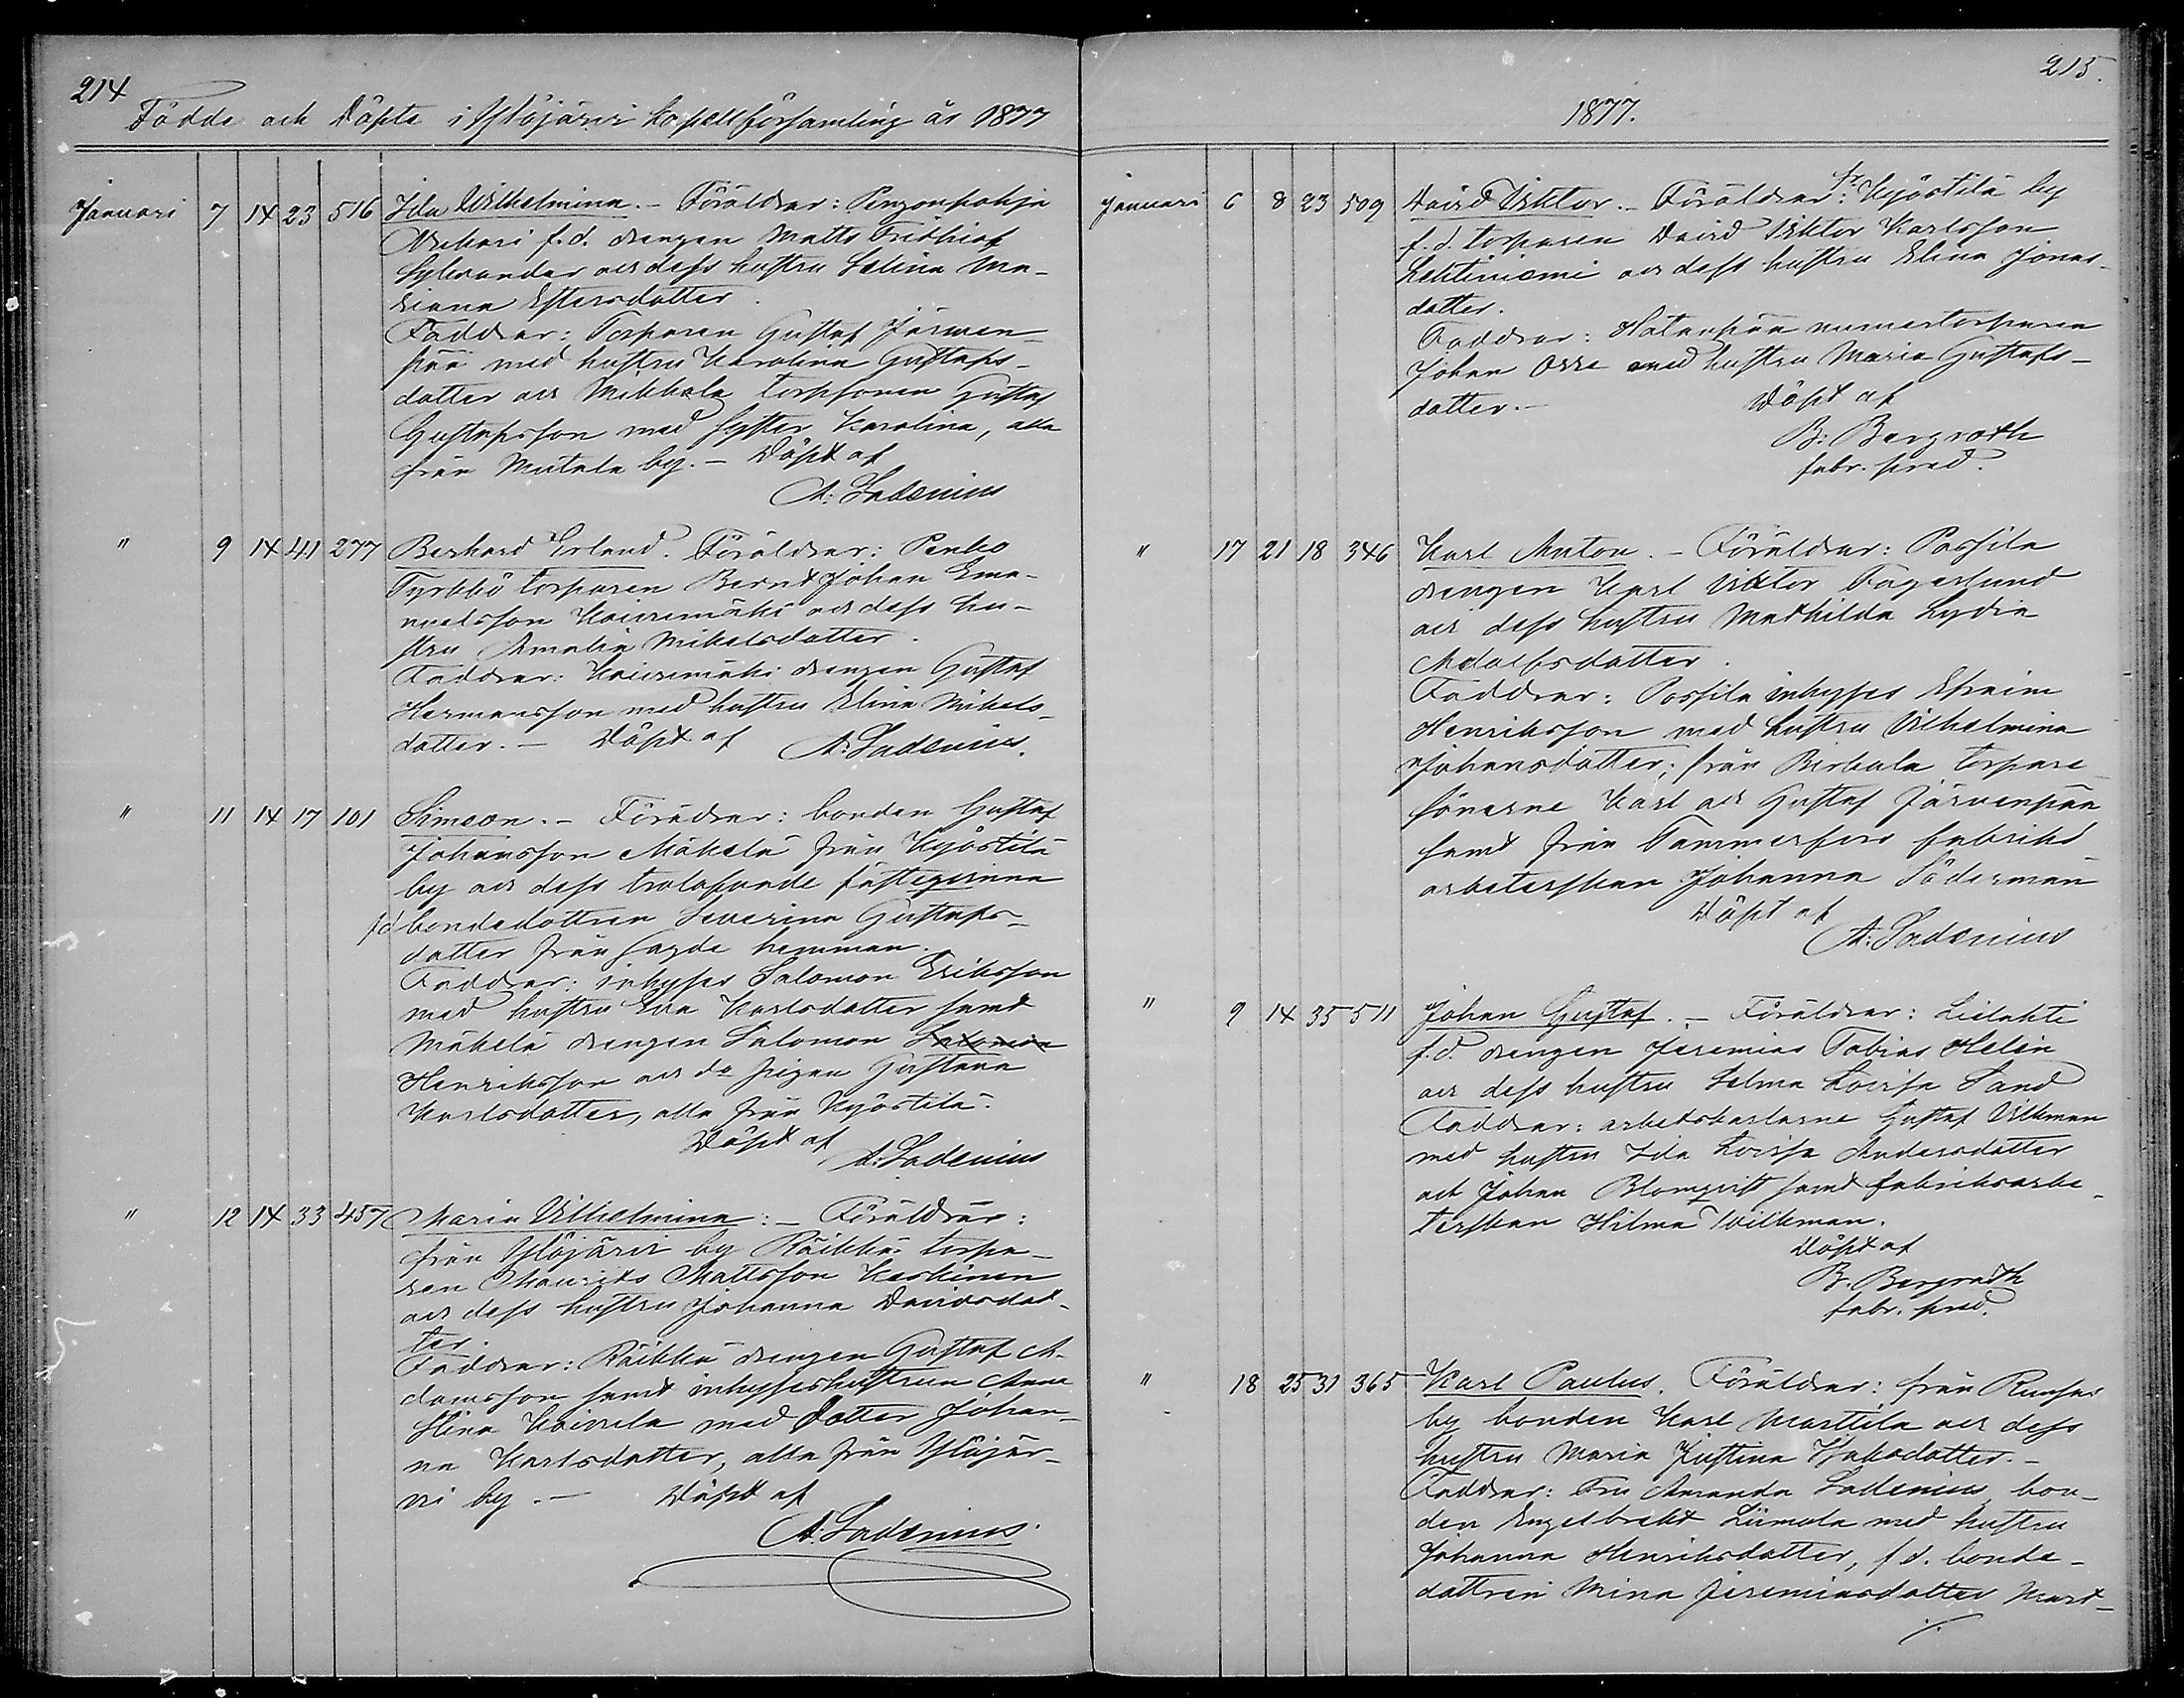 214
Födde och Döpte i Ylöjärvi kapellförsamling år 1877
Januari 7 14 23 516 Ida Wilhelmina. – Föräldrar: Penzonpohja
f.d. drengen Matts Fridhiof
Sylvander och dess hustru Selina Ma-
riana Estersdotter.
Faddrar: Torparen Gustaf Järven-
pää med hustru Karolina Gustafs-
dotter och Mikkola torpsonen Gustaf
Gustafsson med syster Karolina, alla
från Mutala by. – Döpt af
A: Ladenius
" 9 14 41 277 Berhard Erland. Föräldrar: Penko
Tyrkkö torparen Bernt Johan Ema-
nuelsson Koivumäki och dess hu-
stru Amalia Mikelsdotter.
Faddrar: Koivumäki drengen Gustaf
Hermansson med hustru Elina Mikels-
dotter. – Döpt af A: Ladenius.
" 11 14 17 101 Simeon. – Föräldrar: bonden Gustaf
Johansson Mäkelä från Kyöstilä
by och dess trolofvade fästeqvinna
fd bondedottren Severina Gustafs-
dotter från sagde hemman.
Faddrar: inhyses Salomon Eriksson
med hustru Eva Karlsdotter samt
Mäkelä drengen Salomon Salomon
Henriksson och do pigan Gustava
Karlsdotter, alla från Kyöstilä.
Döpt af
A: Ladenius
" 12 14 33 457 Maria Vilhelmina: – Föräldrar:
från Ylöjärvi by Räikkä torpa-
ren Mauritz Mattsson Keskinen
och dess hustru Johanna Davidsdot-
ter.
Faddrar: Räikkä drengen Gustaf A-
damsson samt inhyseshustrun Anna
Stina Koivula med dotter Johan-
na Karlsdotter, alla från Ylöjär-
vi by. – Döpt af
A: Ladenius.
215.
1877.
Januari 6 8 23 509 David Viktor. – Föräldrar: fr. Kyöstilä by
f.d. torparen David Viktor Karlsson
Lehtiniemi och dess hustru Elina Jonas-
dotter.
Faddrar: Hatanpää numertorparen
Johan Orre med hustru Maria Gustafs-
dotter. – Döpt af
B: Bergroth
fabr. pred.
" 17 21 18 346 Karl Anton. – Föräldrar: Passila
drengen Karl Viktor Fagerlund
och dess hustru Mathilda Lydia
Adolfsdotter.
Faddrar: Possila inhyses Efraim
Henriksson med hustru Vilhelmina
Johansdotter; från Birkala torpare-
sönerne Karl och Gustaf Järvenpää
samt från Tammerfors fabriks-
arbeterskan Johanna Söderman
Döpt af
A: Ladenius
" 9 14 35 511 Johan Gustaf. – Föräldrar: Lielahti
f.d. drengen Jeremias Tobias Helin
och dess hustru Selma Lovisa Sand
Faddrar: arbetskarlarne Gustaf Vilkman
med hustru Ida Lovisa Andersdotter
och Johan Blomqvist samt fabriksarbe-
terskan Hilma Wilkman.
Döpt af
B. Bergroth
fabr. pred.
" 18 25 31 365 Karl Paulus. Föräldrar: från Runsas
by bonden Karl Marttila och dess
hustru Maria Justina Isaksdotter. –
Faddrar: Fru Amanda Ladenius, bon-
den Engelbrekt Liimola med hustru
Johanna Henriksdotter, f.d. bonde-
dottren Mina Jeremiasdotter Mart-
./.